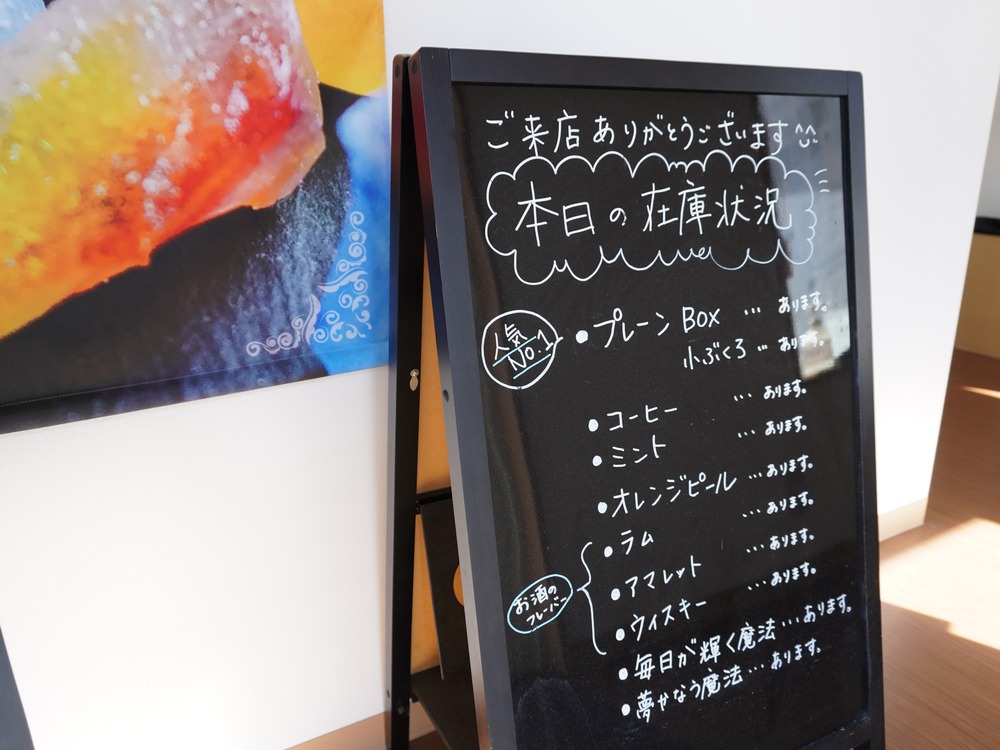 ご来店ありがとうございます
本日の在庫状況
人気No.1
・プレーンBox … あります。
小ぶくろ … あります。
・コーヒー … あります。
・ミント … あります。
・オレンジピール … あります。
お酒のフレーバー
・ラム … あります。
・アマレット … あります。
・ウィスキー … あります。
・毎日が輝く魔法 … あります。
・夢かなう魔法 … あります。